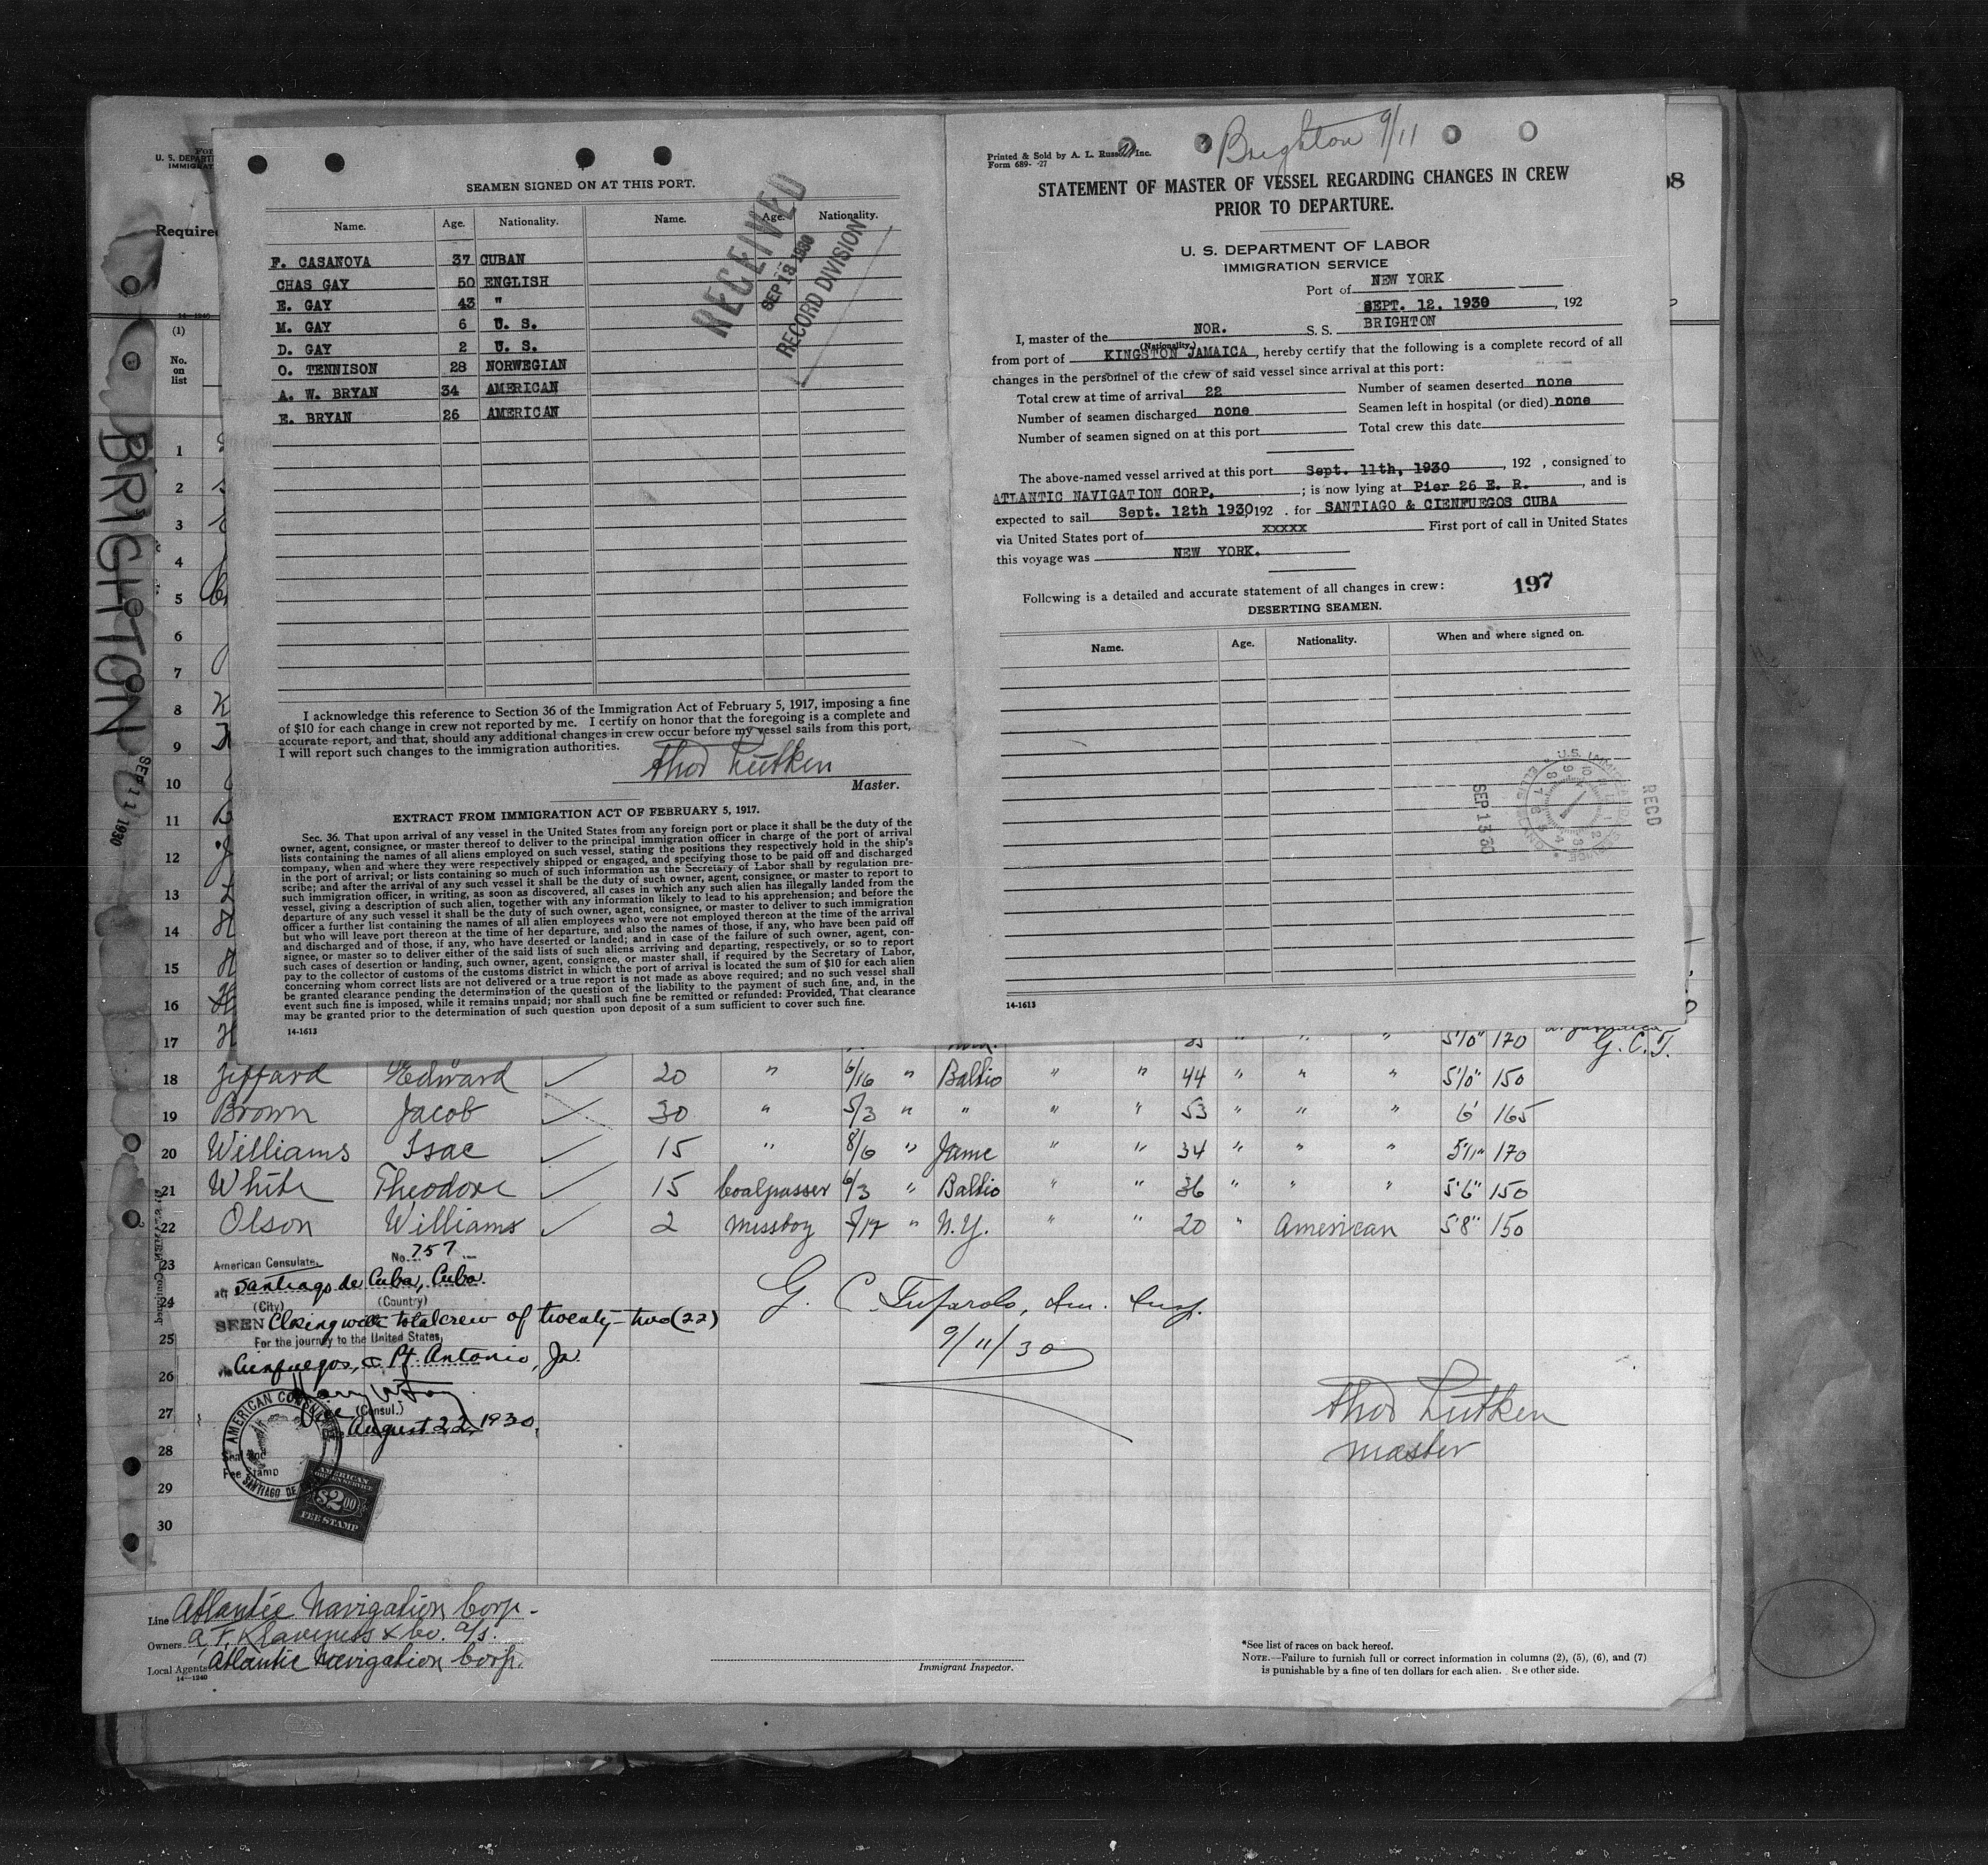 SEAMEN SIGNED ON AT THIS PORT.
Name. Age. Nationality. Name. Age. Nationality.
F. CASANOVA 37 CUBAN
CHAS GAY 50 ENGLISH
E. GAY 43 "
M. GAY 6 U. S.
D. GAY 2 U. S.
O. TENNISON 28 NORWEGIAN
A. W. BRYAN 34 AMERICAN
E. BRYAN 26 AMERICAN
RECEIVED
SEP 18 1930
RECORD DIVISION
I acknowledge this reference to Section 36 of the Immigration Act of February 5, 1917, imposing a fine
of $10 for each change in crew not reported by me. I certify on honor that the foregoing is a complete and
accurate report, and that, should any additional changes in crew occur before my vessel sails from this port,
I will report such changes to the immigration authorities.
Thod Lütken
Master.
EXTRACT FROM IMMIGRATION ACT OF FEBRUARY 5, 1917.
Sec. 36. That upon arrival of any vessel in the United States from any foreign port or place it shall be the duty of the
owner, agent, consignee, or master thereof to deliver to the principal immigration officer in charge of the port of arrival
lists containing the names of all aliens employed on such vessel, stating the positions they respectively hold in the ship's
company, when and where they were respectively shipped or engaged, and specifying those to be paid off and discharged
in the port of arrival; or lists containing so much of such information as the Secretary of Labor shall by regulation pre-
scribe; and after the arrival of any such vessel it shall be the duty of such owner, agent, consignee, or master to report to
such immigration officer, in writing, as soon as discovered, all cases in which any such alien has illegally landed from the
vessel, giving a description of such alien, together with any information likely to lead to his apprehension; and before the
departure of any such vessel it shall be the duty of such owner, agent, consignee, or master to deliver to such immigration
officer a further list containing the names of all alien employees who were not employed thereon at the time of the arrival
but who will leave port thereon at the time of her departure, and also the names of those, if any, who have been paid off
and discharged and of those, if any, who have deserted or landed; and in case of the failure of such owner, agent, con-
signee, or master so to deliver either of the said lists of such aliens arriving and departing, respectively, or so to report
such cases of desertion or landing, such owner, agent, consignee, or master shall, if required by the Secretary of Labor,
pay to the collector of customs of the customs district in which the port of arrival is located the sum of $10 for each alien
concerning whom correct lists are not delivered or a true report is not made as above required; and no such vessel shall
be granted clearance pending the determination of the question of the liability to the payment of such fine, and, in the
event such fine is imposed, while it remains unpaid; nor shall such fine be remitted or refunded: Provided, That clearance
may be granted prior to the determination of such question upon deposit of a sum sufficient to cover such fine.
14-1613
Brighton 9/11
Printed & Sold by A. L. Russell Inc.
Form 689- -27
STATEMENT OF MASTER OF VESSEL REGARDING CHANGES IN CREW
PRIOR TO DEPARTURE.
U. S. DEPARTMENT OF LABOR
IMMIGRATION SERVICE
Port of NEW YORK
SEPT. 12, 1930, 192
I, master of the NOR. S. S. BRIGHTON
(Nationality.)
from port of KINGSTON JAMAICA, hereby certify that the following is a complete record of all
changes in the personnel of the crew of said vessel since arrival at this port:
Total crew at time of arrival 22 Number of seamen deserted none
Number of seamen discharged none Seamen left in hospital (or died) none
Number of seamen signed on at this port Total crew this date
The above-named vessel arrived at this port Sept. 11th, 1930, 192 , consigned to
ATLANTIC NAVIGATION CORP. ; is now lying at Pier 26 E. R. , and is
expected to sail Sept. 12th 1930 192 . for SANTIAGO & CIENFUEGOS CUBA
via United States port of xxxxx First port of call in United States
this voyage was NEW YORK.
197
Following is a detailed and accurate statement of all changes in crew:
DESERTING SEAMEN.
Name. Age. Nationality. When and where signed on.
SEP 13 30
RECD
14-1613
BRIGHTON
SEP 11 1930
U. S. DEPART
IMMIGRAT
Required
(1)
No.
on
list
1
2
3
4
5
6
7
8
9
10
11
12
13
14
15
16
17 5'10" 170
G. C. T.
18 Jiffard Edward 20 " 6/16 " Baltio " " 44 " " " 5'10" 150
19 Brown Jacob 30 " 5/3 " " " " 53 " " " 6' 165
20 Williams Isac 15 " 8/6 " Jame " " 34 " " " 5'11" 170
21 White Theodore 15 Coalpasser 6/3 " Baltio " " 36 " " " 5'6" 150
22 Olson Williams 2 Messboy 7/17 " N.Y. " " 20 " American 5'8" 150
23
24
25
26
27
28
29
30
American Consulate, No. 757
at Santiago de Cuba, Cuba.
(City) (Country)
SEEN Closing with total crew of twenty-two (22)
For the journey to the United States,
via Cienfuegos, & Pt. Antonio, Ja.
Vice (Consul.)
August 22, 1930.
AMERICAN CONSULATE
SANTIAGO DE
Seal and
Fee Stamp
AMERICAN
$2.00
FEE STAMP
9/11/30
Thod Lütken
master
Line Atlantic Navigation Corp.
Owners A. F. Klaveness & Co. A/S.
Local Agents Atlantic Navigation Corp.
14-1240
Immigrant Inspector.
*See list of races on back hereof.
NOTE.—Failure to furnish full or correct information in columns (2), (5), (6), and (7)
is punishable by a fine of ten dollars for each alien. See other side.